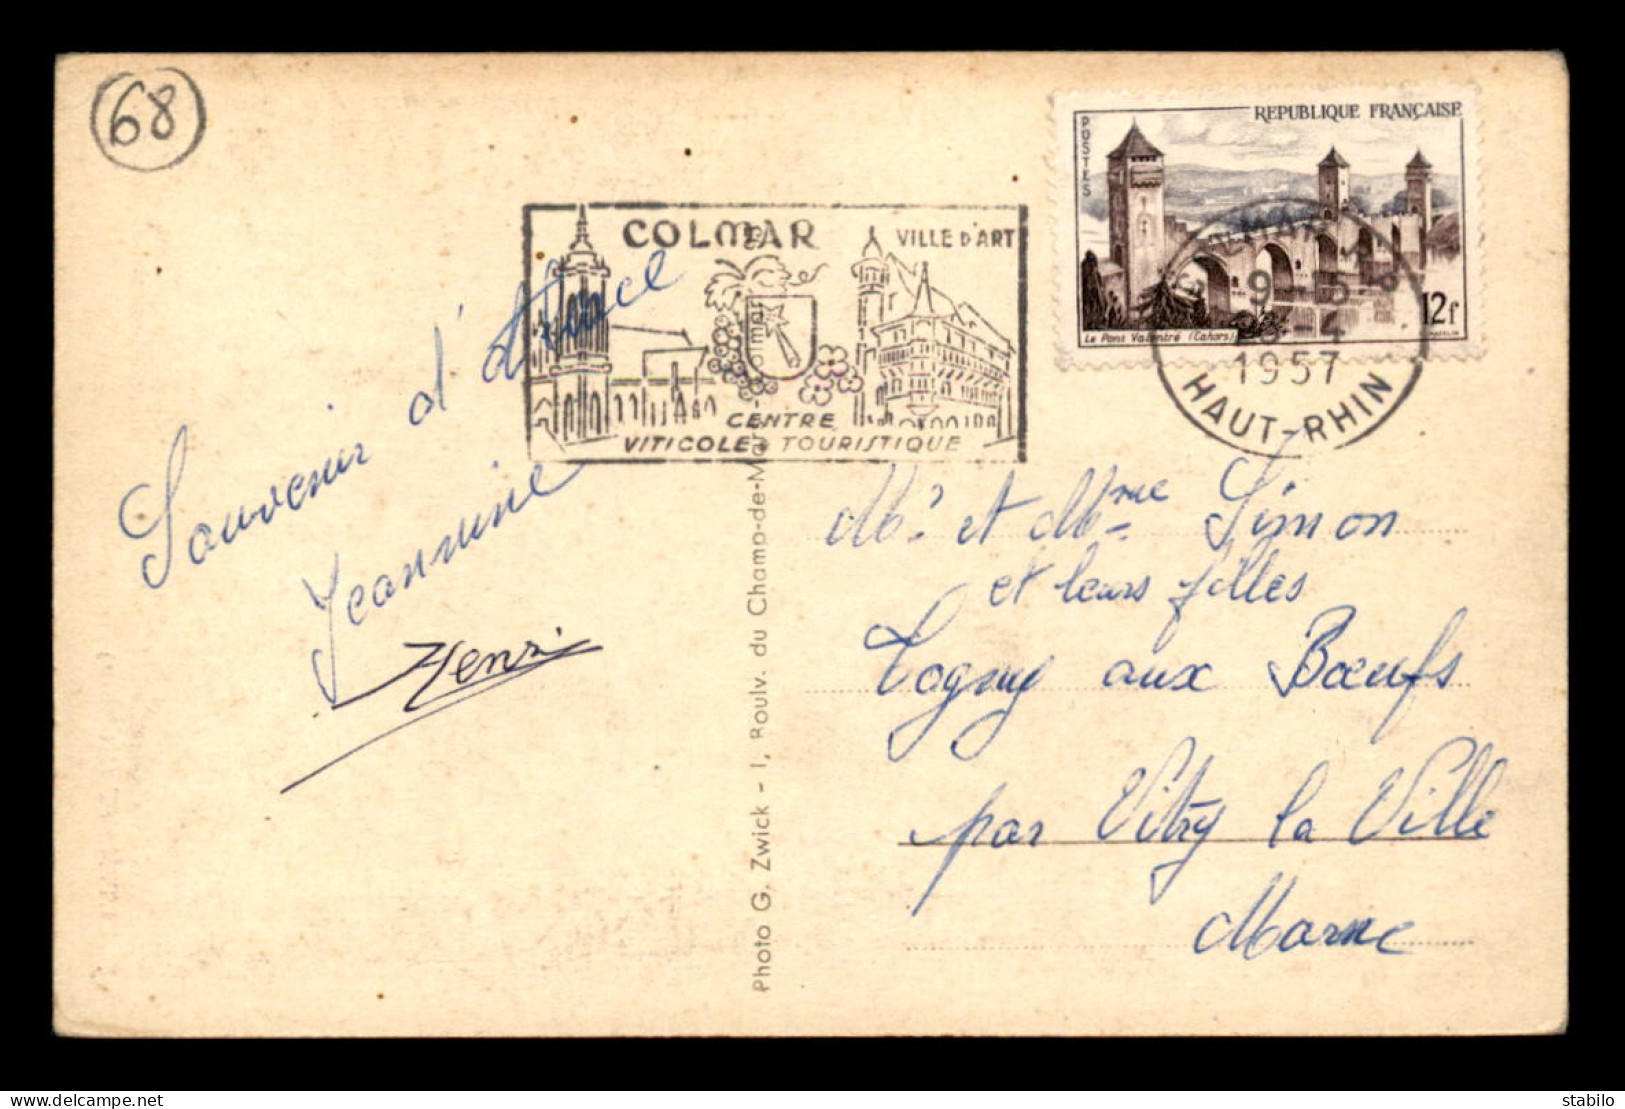 68
COLMAR
VILLE D'ART
CENTRE
VITICOLE TOURISTIQUE
REPUBLIQUE FRANÇAISE
POSTES
12f
Le Pont Valentré (Cahors)
1957
HAUT-RHIN
Souvenir d'
Jeannine
Henri
Photo G. Zwick - 1, Roulv. du Champ-de-Mars - Colmar
Mr et Mme Simon
et leurs filles
Togny aux Bœufs
par Vitry la Ville
Marne
delcampe.net
stabilo